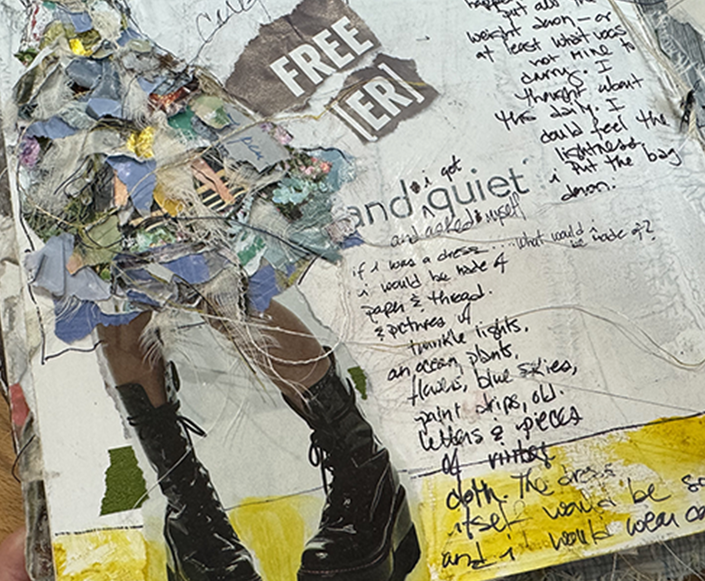 FREE
[ER]
put all the
weight down - or
at least what was
not mine to
carry. I
thought about
this daily. I
could feel the
lightness
i put the bag
down.
i got
and quiet
and asked myself
if i was a dress.... what would i be made of?
i would be made of
paper & thread.
& pictures of
twinkle lights,
an ocean, plants,
flowers, blue skies,
paint drips, old
letters & pieces
of
cloth. The dress
itself would be so
and i would wear